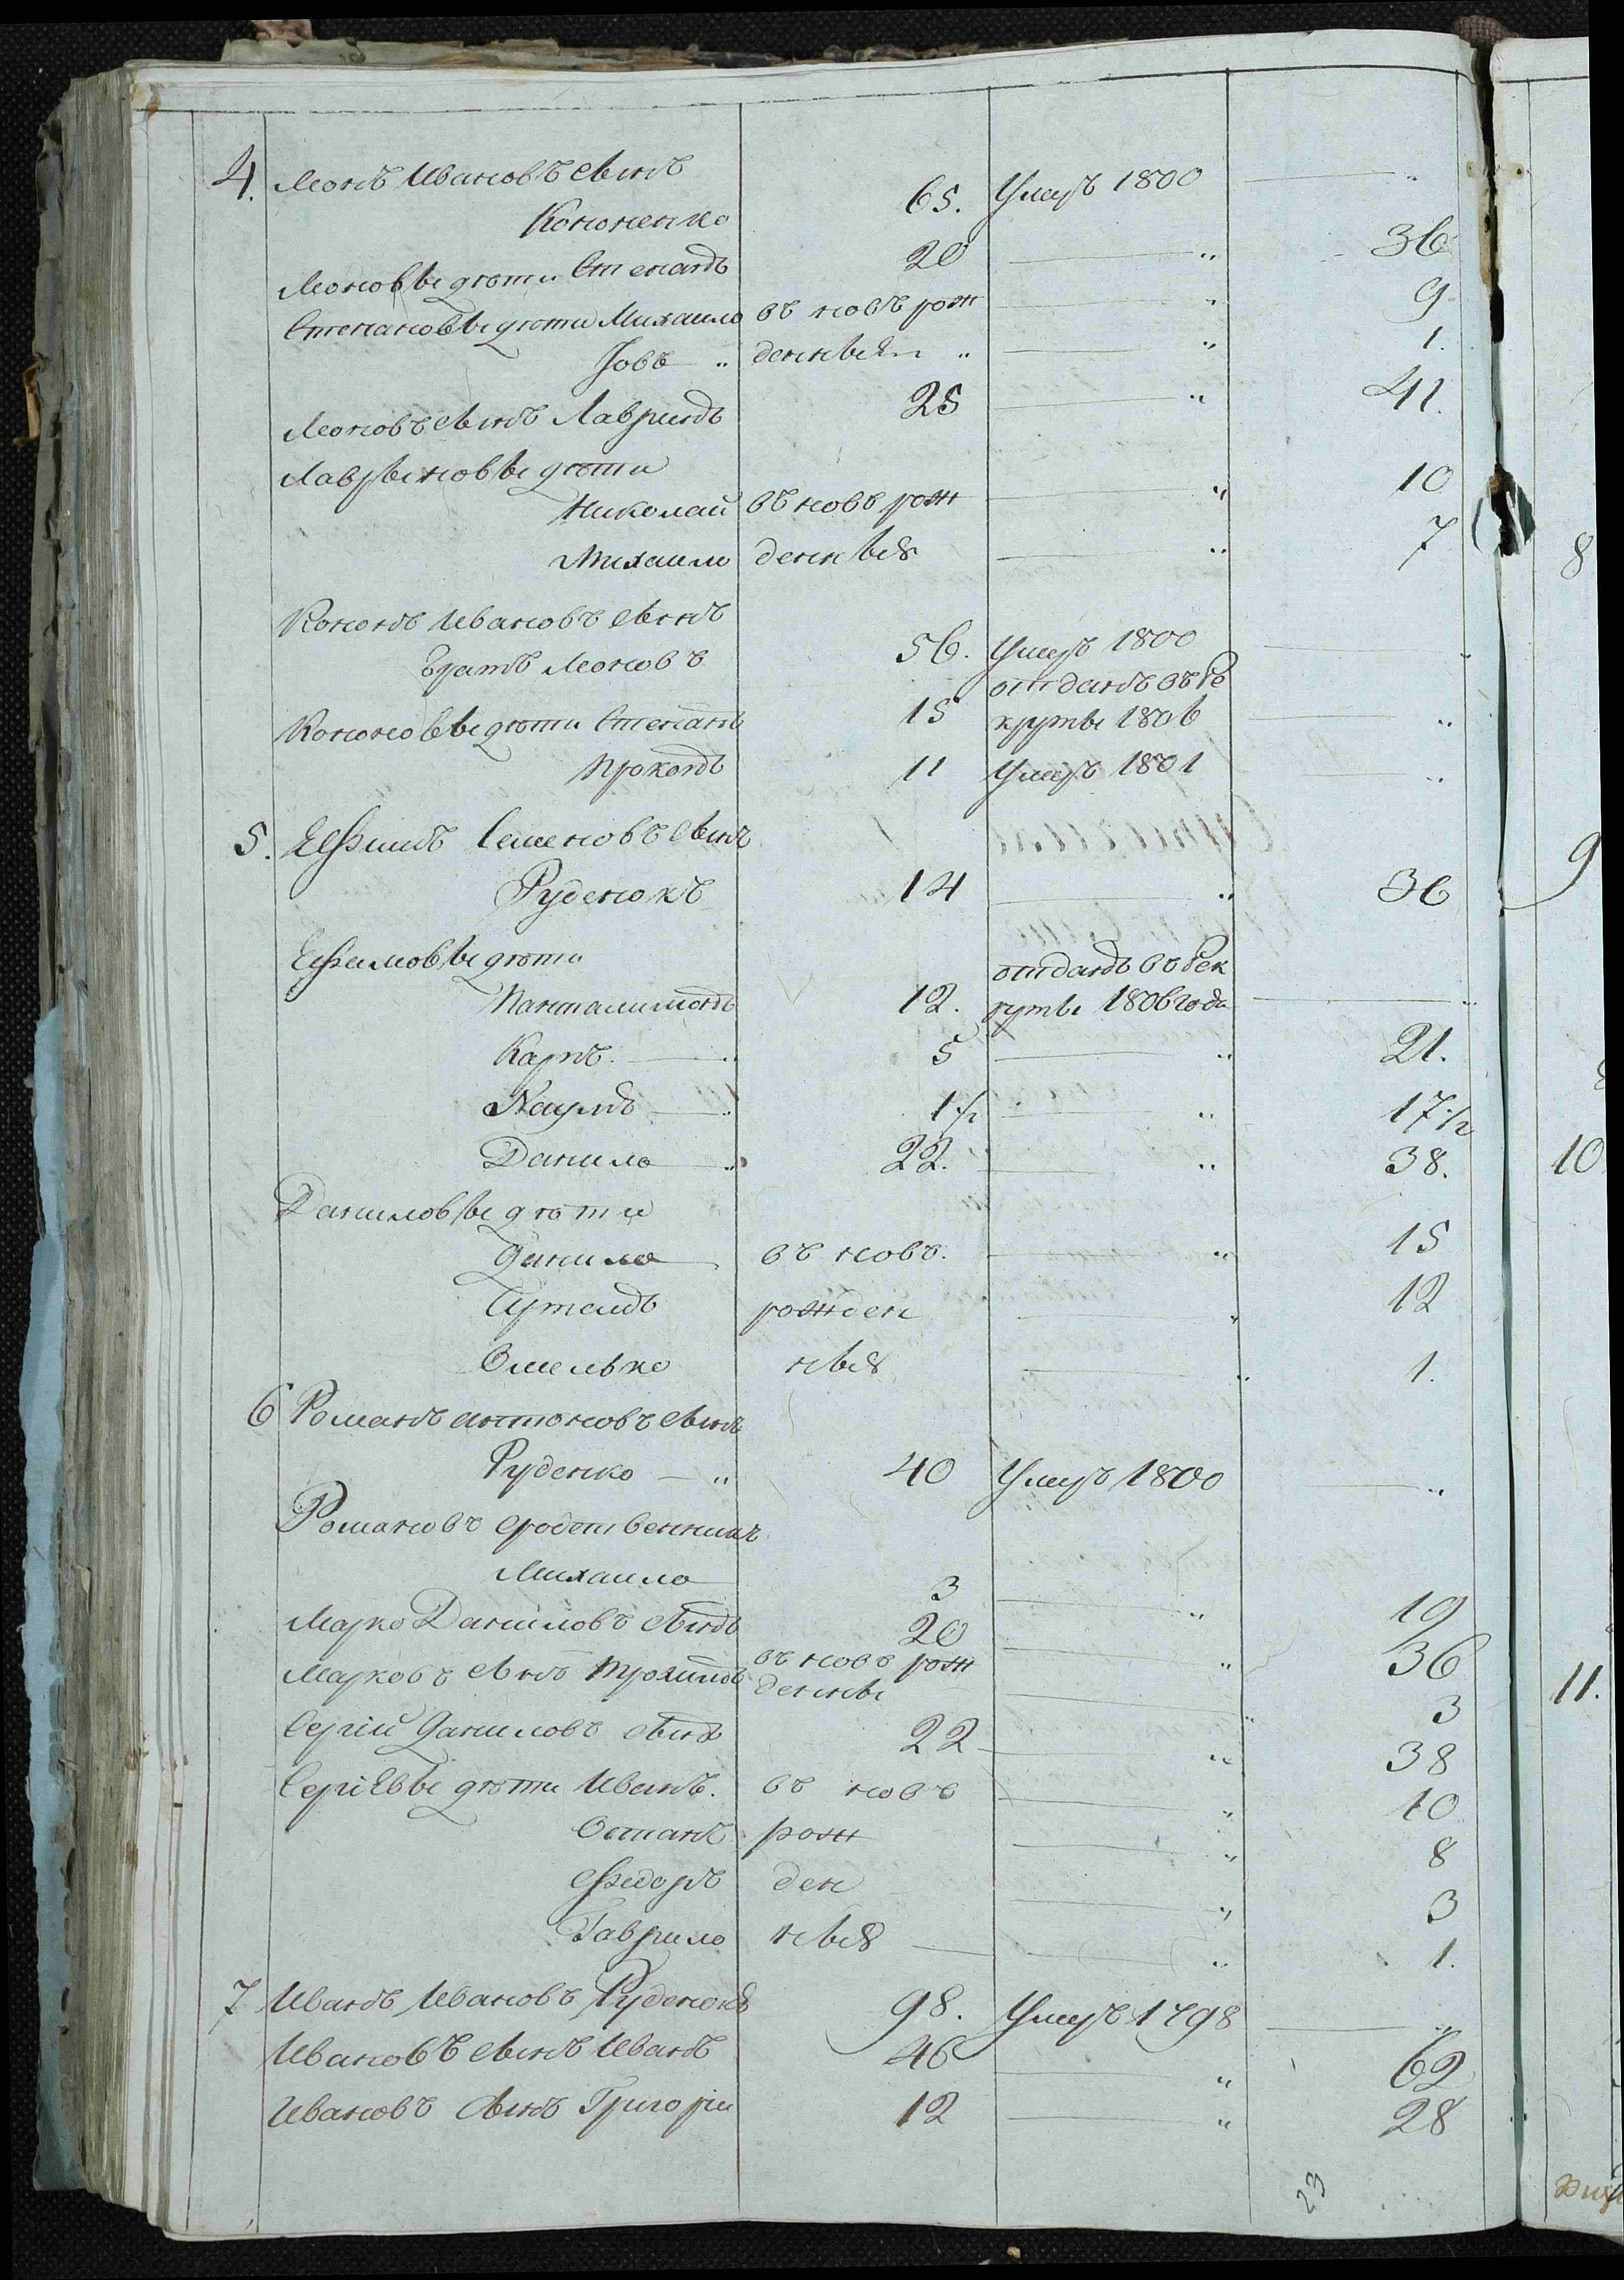 4. Леонъ Ивановъ Сынъ
Кононенко 65. Умеръ 1800 — "
Леоновы дѣти Степанъ 20 — " 36
Степановы дѣти Михайло въ новъ рож — " 9
Іовъ " денныи " — " 1.
Леоновъ Сынъ Лавринъ 25 — " 41.
Лаврыновы дѣти
Николай въ новъ рож — " 10
Михайло денные — " 7
Кононъ Ивановъ Сынъ
братъ Леоновъ 56. Умеръ 1800 — "
отданъ въ ре
Кононовы дѣти Степанъ 15 круты 1806 — "
Прокопъ 11 Умеръ 1801 — "
5. Ефимъ Семеновъ Сынъ
Руденокъ 14 — " 36
Ефимовы дѣти отданъ въ рек
Панталимонъ 12. руты 1806 года — "
Карпъ. — " 5 — " 21.
Наумъ — " 1 ½ — " 17 ½
Данило — " 22. — " 38.
Даниловы дѣти
Данило въ новъ. — " 15
Артемъ рожден — " 12
Омелько ные — " 1.
6 Романъ Антоновъ Сынъ
Руденко — " 40 Умеръ 1800 — "
Романовъ сродственникъ
Михайло 3 — " 19
Марко Даниловъ Сынъ 20 — " 36
Марковъ Сынъ Трохимъ въ новъ рож
денны — " 3
Сергій Даниловъ Сынъ 22 — " 38
Сергіевы дѣти Иванъ. въ новъ — " 10
Остапъ рож — " 8
Федоръ ден — " 3
Гаврило ные — " 1.
7 Иванъ Ивановъ Руденокъ 98. Умеръ 1798 — "
Ивановъ Сынъ Иванъ 46 — " 62
Ивановъ Сынъ Григорій 12 — " 28
23
8
9
10
11.